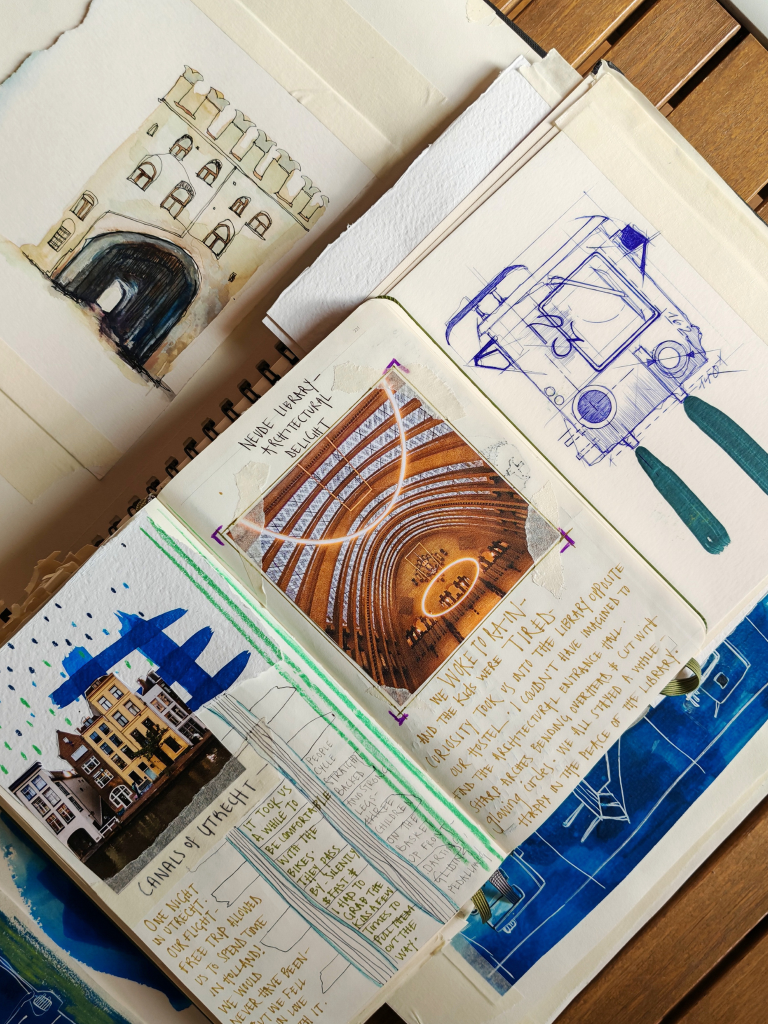 NEUDE LIBRARY-
ARCHITECTURAL
DELIGHT
WE WOKE TO RAIN-
AND THE KIDS WERE TIRED-
CURIOSITY TOOK US INTO THE LIBRARY OPPOSITE
OUR HOSTEL- I COULDN'T HAVE IMAGINED TO
FIND THE ARCHITECTURAL ENTRANCE HALL-
SHARP ARCHES BENDING OVERHEAD & CUT WITH
glowing CIRCLES. WE ALL STAYED A WHILE-
HAPPY IN THE PEACE OF THE LIBRARY.
CANALS OF UTRECHT-
ONE NIGHT
IN UTRECHT-
OUR FLIGHT-
FREE TRIP ALLOWED
US TO SPEND TIME
IN HOLLAND!
WE WOULD
NEVER HAVE BEEN-
WE FELL
IN LOVE
IT.
IT TOOK US
A WHILE TO
BE COMFORTABLE
WITH THE
BIKES-
THEY PASS
BY SILENTLY
& FAST &
JUMP TO
GRAB THE
KIDS
TIMES TO
PULL THEM
OUT THE
WAY-
PEOPLE
CYCLE
STRAIGHT
BACKED
AND STRONG
LEGS-
THREE
CHILDREN
ON THE
BASKET
OF FLOWERS
DARING
GLIDING
PEDALLING